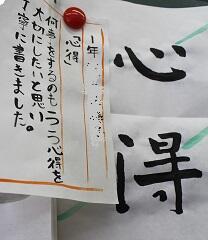 心得
一年
心得
何事をするのも心得を
大切にしたいと思い
丁寧に書きました。